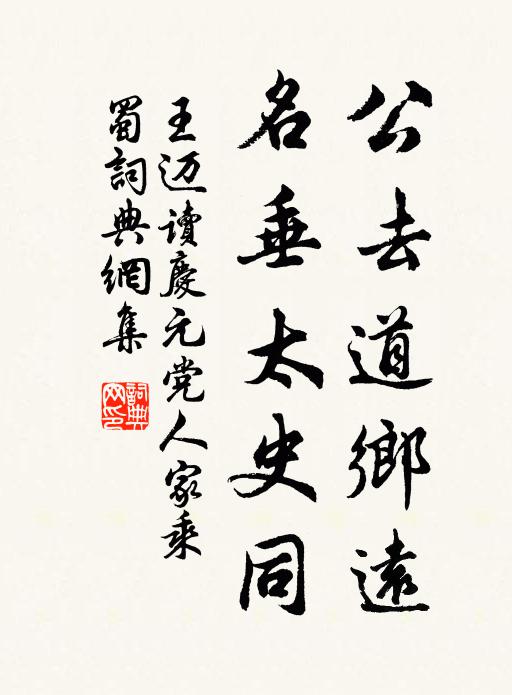 公去道鄉遠
名垂太史同
王迈讀慶元党人家乘
蜀詞典網集
詞典网印